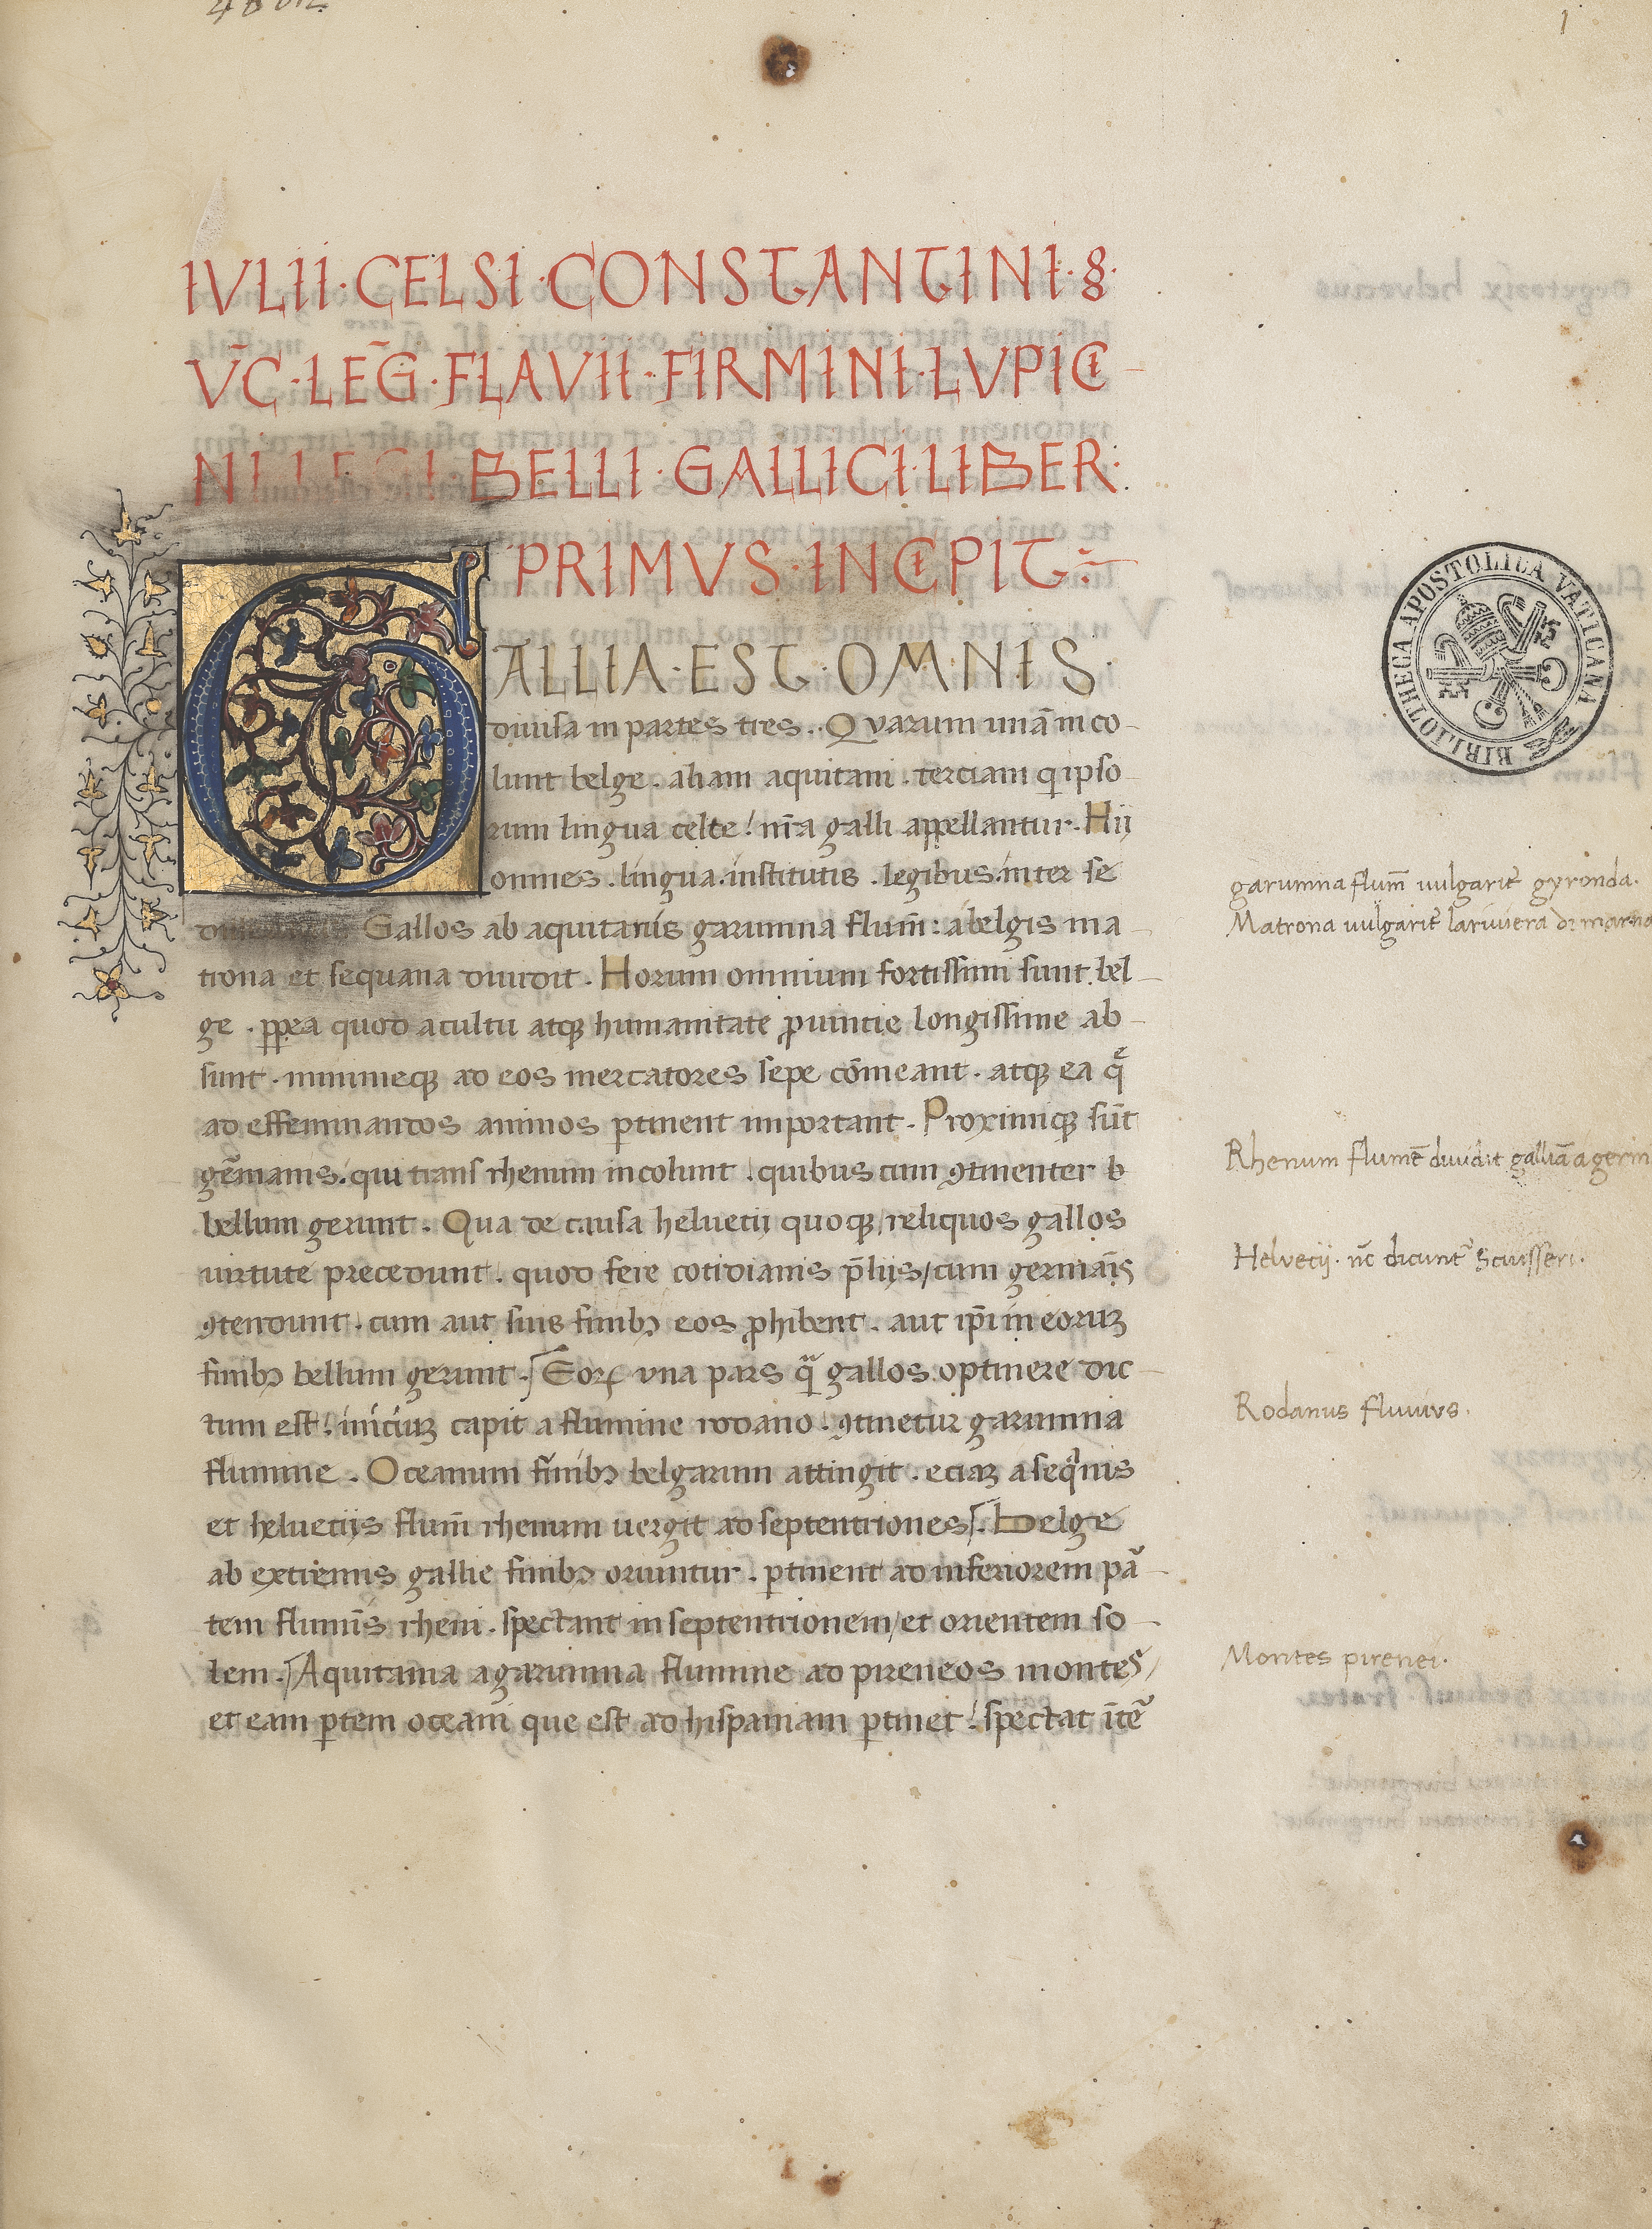 1
IVLII·CELSI·CONSTANTINI·§·
V̄C·LEḠ·FLAVII·FIRMINI·LVPICI
NI LEGI BELLI·GALLICI·LIBER·
PRIMVS·INCIPIT·
GALLIA·EST·OMNIS·
diuisa in partes tres. Quarum unā inco
lunt belge. aliam aquitani. terciam q̄ ipso
rum lingua celte! nr̄a galli appellantur. Hij
omnes. lingua. institutis. legibus. inter se
Gallos ab aquitanis garumna flum̄: a belgis ma
trona et sequana diuidit. Horum omnium fortissimi sunt bel
ge. ꝓpea quod a cultu atqꝫ humanitate ꝓuintie longissime ab
sunt. minimeqꝫ ad eos mercatores sepe cōmeant. atqꝫ ea q̄
ad effeminandos animos ꝑtinent important. Proximiqꝫ sūt
gēmanis. qui trans rhenum incolunt. quibuscum ꝯtinenter b
bellum gerunt. Qua de causa heluetij quoqꝫ/ reliquos gallos
uirtute precedunt. quod fere cotidianis p̄lijs/ cum germāis
ꝯtendunt. cum aut suis finibꝫ eos ꝓhibent. aut ip̄i in eoruꝫ
finibꝫ bellum gerunt. Eoꝝ una pars qͣ gallos optinere dic
tum est! iniciuꝫ capit a flumine rodano. ꝯtinetur garumna
flumine. Oceanum finibꝫ belgarum attingit. eciaꝫ a seqͣnis
et heluetijs flum̄ rhenum uergit ad septentriones. Belge
ab extremis gallie finibꝫ oriuntur. ꝑtinent ad inferiorem pā
tem flumīs rheni. spectant in septentrionem/ et orientem so
lem. Aquitania a garumna flumine ad pireneos montes/
et eam ꝑtem oceani que est ad hispaniam ꝑtinet! spectat ītē
garumna flum̄ uulgarit̄ gyronda.
Matrona uulgarit̄ la riuiera de marna
Rhenum flumē diuidit galliā a germ
Helvecij. nc̄ dicunt̄ Sciusseri.
Rodanus fluuius.
Montes pirenei.
BIBLIOTHECA APOSTOLICA VATICANA